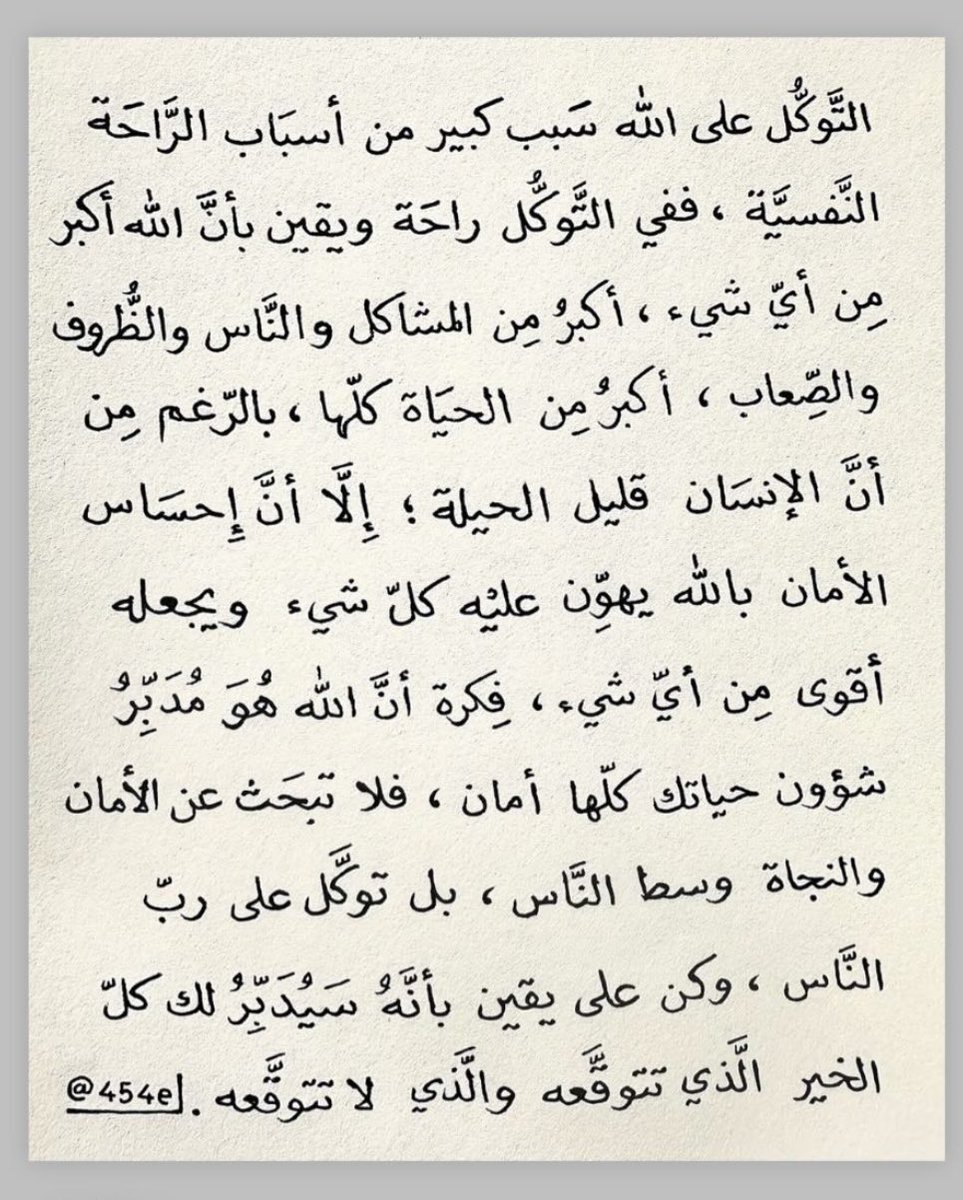 التَّوكُّل على الله سَبب كبير من أسبَاب الرَّاحَة
النَّفسيَّة ، ففي التَّوكُّل راحَة ويقين بأنَّ الله أكبر
مِن أيّ شيء ، أكبرُ مِن المشاكل والنَّاس والظُّروف
والصِّعاب ، أكبرُ مِن الحيَاة كلّها ، بالرّغم مِن
أنَّ الإنسَان قليل الحيلة ؛ إِلَّا أنَّ إِحسَاس
الأمان بالله يهوِّن عليْه كلّ شيء ويجعله
أقوى مِن أيّ شيء ، فِكرة أنَّ الله هُوَ مُدَبِّرُ
شؤون حياتك كلّها أمان ، فلا تبحَث عن الأمان
والنجاة وسط النَّاس ، بل توكَّل على ربّ
النَّاس ، وكن على يقين بأنَّهُ سَيُدَبِّرُ لك كلّ
الخير الَّذي تتوقَّعه والَّذي لا تتوقَّعه . @454e